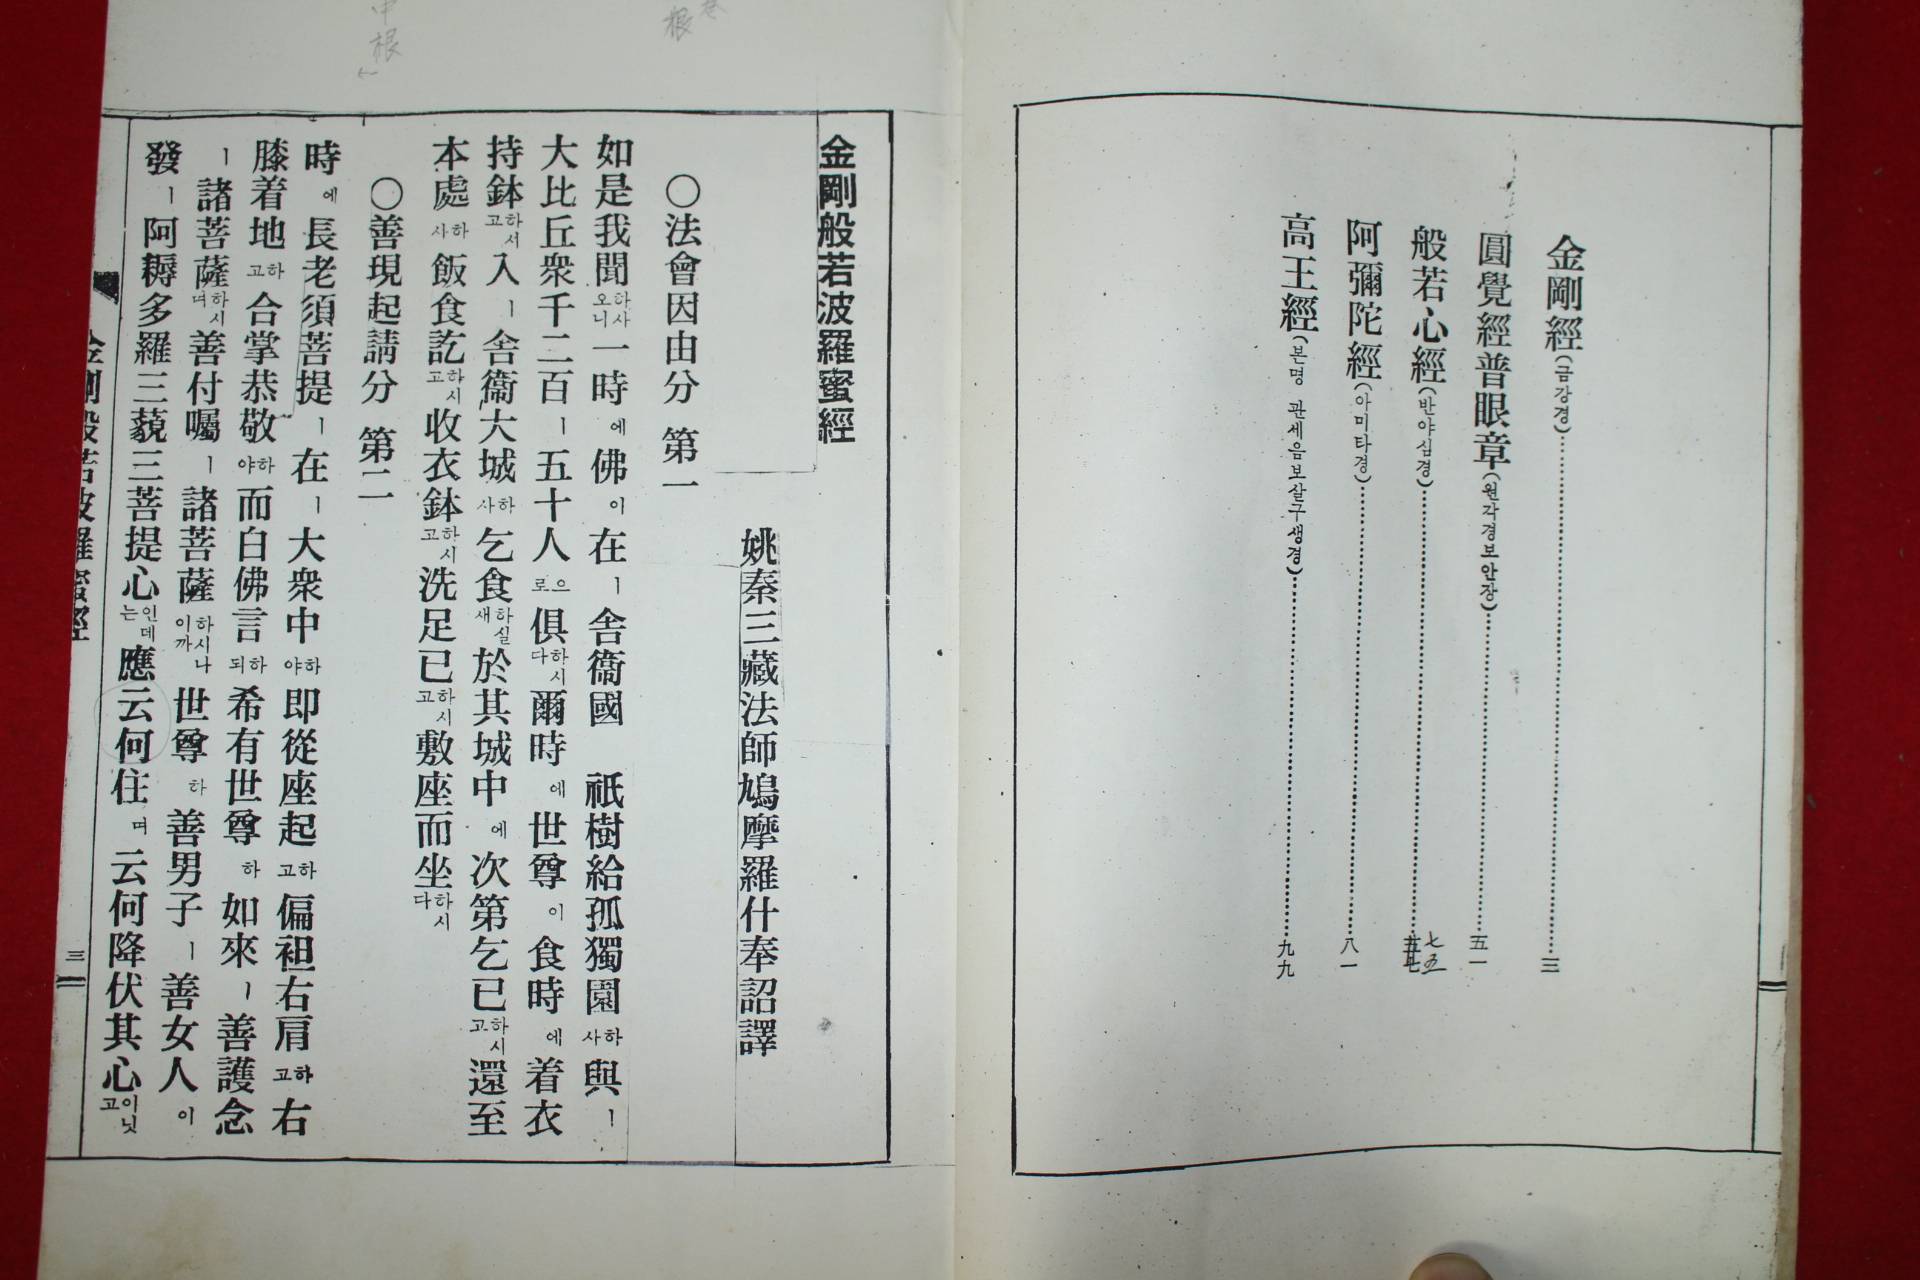 金剛經(금강경)……三
圓覺經普眼章(원각경보안장)……五一
般若心經(반야심경)……七五
阿彌陀經(아미타경)……八一
高王經(본명 관세음보살구생경)……九九
根
中根
金剛般若波羅蜜經
姚秦三藏法師鳩摩羅什奉詔譯
○法會因由分 第一
如是我聞하사오니一時에佛이在ㅣ舍衞國 祇樹給孤獨園하사與ㅣ
大比丘衆千二百ㅣ五十人으로俱하시다爾時에世尊이食時에着衣
持鉢하서고入ㅣ舍衞大城하사乞食하실새於其城中에次第乞已하시고還至
本處하사飯食訖하시고收衣鉢하시고洗足已하시고敷座而坐하시다
○善現起請分 第二
時에長老須菩提ㅣ在ㅣ大衆中하야即從座起하고偏袒右肩하고右
膝着地하고合掌恭敬하야而白佛言하되希有世尊하如來ㅣ善護念
ㅣ諸菩薩하시며善付囑ㅣ諸菩薩하시나이까世尊하善男子ㅣ善女人이
發ㅣ阿耨多羅三藐三菩提心인데는應云何住며云何降伏其心이닛고
金剛般若波羅蜜經
三